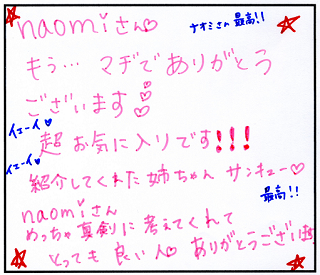 naomiさん♡
ナオミさん最高!!
もぅ… マヂでありがとう
ございます
イエーイ
超 お気に入りです!!!
イエーイ
紹介してくれた姉ちゃん サンキュー♡
最高!!
naomiさん
めっちゃ真剣に考えてくれて
とっても良い人♡ ありがとうございます